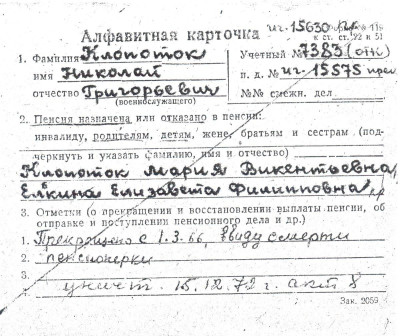 Алфавитная карточка иг.-15630 пр
к ст. ст. 22 и 51
1. Фамилия Клопоток Учетный № 7383 (отк)
имя Николай п. д. № иг.-15575 прек
отчество Григорьевич №№ смежн. дел
(военнослужащего)
2. Пенсия назначена или отказано в пенсии:
инвалиду, родителям, детям, жене, братьям и сестрам (под-
черкнуть и указать фамилию, имя и отчество)
Клопоток Мария Викентьевна,
Ёлкина Елизавета Филипповна, пр
3. Отметки (о прекращении и восстановлении выплаты пенсии, об
отправке и поступлении пенсионного дела и др.)
1. Прекращено с 1.3.66, ввиду смерти
2. пенсионерки
3. уничт. 15.12.72 г. акт 8
Зак. 2059